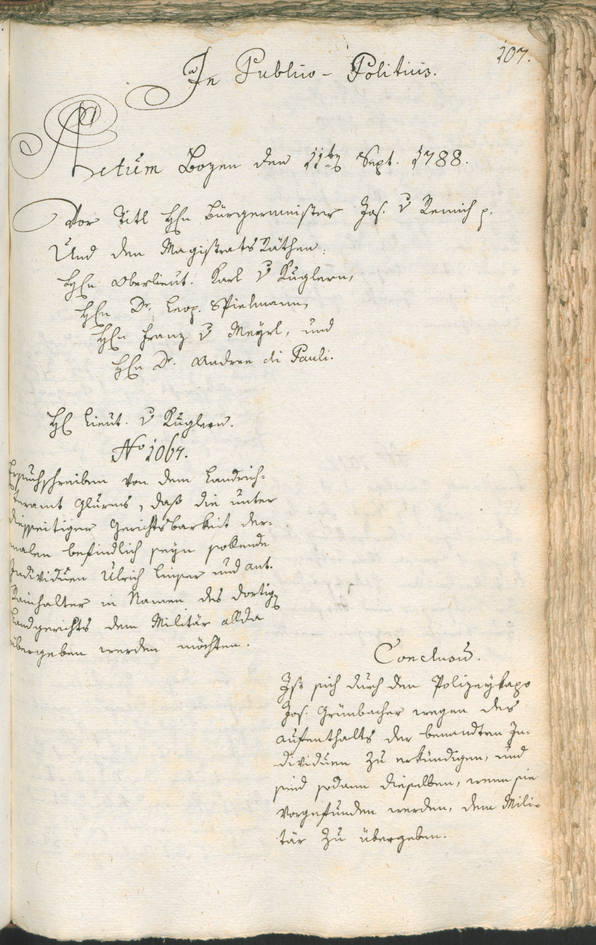 207.
In Publico-Politicis.
Actum Bozen den 11ten Sept. 1788.
Vor Titl Hhn Bürgermeister Jos. v Remich p.
Und den Magistrats Räthen,
Hhn Oberlieut. Karl v Kuglern,
Hhn Dr. Leop. Spielmann,
Hhn Franz v Meyrl, und
Hhn Dr. Andree di Pauli.
Hl Lieut. v Kuglern.
No 1067.
Ersuchschreiben von dem Landrich-
teramt Glurns, daß die unter
diesseitiger Gerichtsbarkeit der-
malen befindlich seyn sollende
Individuen Ulrich Linser und Ant.
Rainhalter in Namen des dortigen
Landgerichts dem Militär allda
übergeben werden möchten.
Conclusum.
Ist sich durch den Polizeykapo
Jos. Grünbacher wegen des
Aufenthalts der benandten In-
dividuen zu erkundigen, und
sind sodann dieselben, wenn sie
vorgefunden werden, dem Mili-
tär zu übergeben.